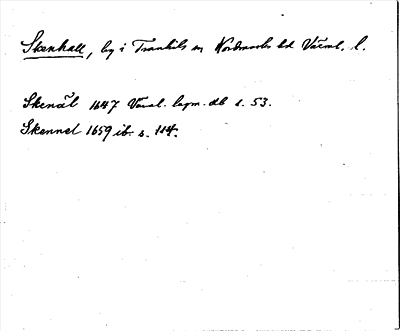 Skenhall, by i Trankils sn Nordmarks hd Värml. l.
Skenäl 1647 Värml. lagm. db s. 53.
Skennel 1659 ib. s. 114.